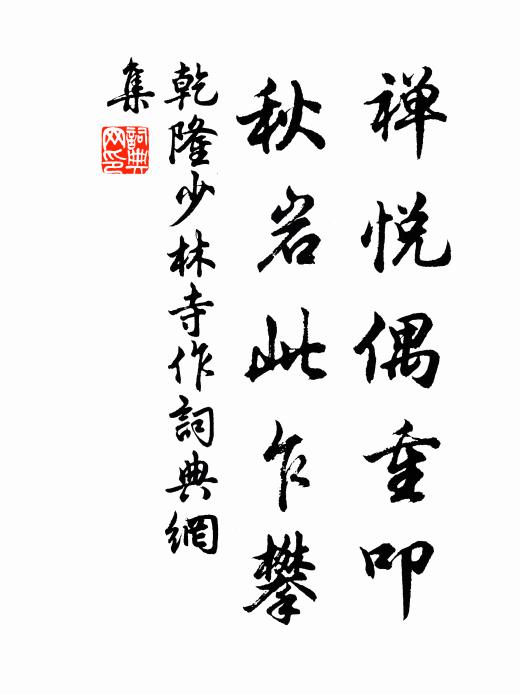 禅悦偶重叩
秋岩此乍攀
乾隆少林寺作詞典網
集
詞典網印